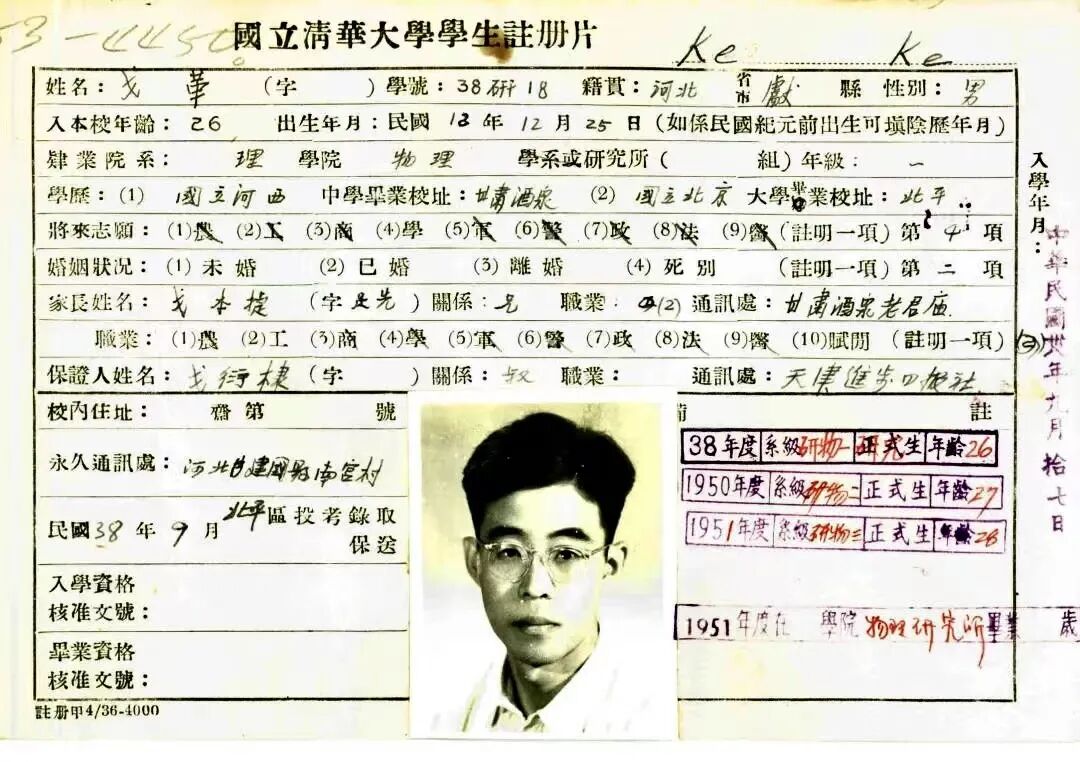 53-4450
國立清華大學學生註册片
Ke Ke
姓名：戈 革 （字 ）學號：38研18 籍貫：河北省市獻縣 性別：男
入本校年齡：26 出生年月：民國13年12月25日（如係民國紀元前出生可填陰歷年月）
肄業院系：理學院 物理 學系或研究所（ 組）年級：一
學歷：(1) 國立河西 中學畢業校址：甘肅酒泉 (2) 國立北京 大學畢業校址：北平
將來志願：(1)農 (2)工 (3)商 (4)學 (5)軍 (6)警 (7)政 (8)法 (9)醫（註明一項）第 4 項
婚姻狀况：(1)未婚 (2)已婚 (3)離婚 (4)死別 （註明一項）第 二 項
家長姓名：戈本捷（字 足先）關係：兄 職業：(2) 通訊處：甘肅酒泉老君庙
職業：(1)農 (2)工 (3)商 (4)學 (5)軍 (6)警 (7)政 (8)法 (9)醫 (10)賦閒（註明一項）(2)
保證人姓名：戈衍棣（字 ）關係：叔 職業： 通訊處：天津進步日报社
校內住址： 齋第 號
永久通訊處：河北 建國縣南宫村
民國38年9月北平區投考錄取
保送
入學資格
核准文號：
畢業資格
核准文號：
註册甲4/36-4000
註
38年度 系級研物一 正式生 年齡26
1950年度 系級研物二 正式生 年齡27
1951年度 系級研物三 正式生 年齡28
1951年度在 學院物理研究所畢業 歲
入學年月：
中華民國卅八年九月拾七日